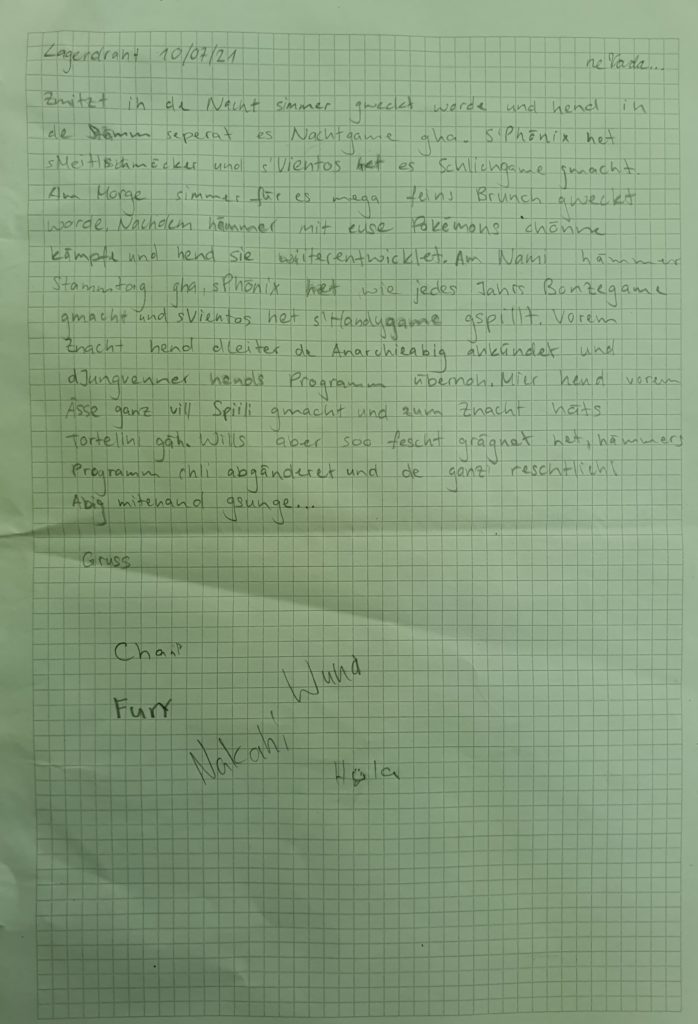 Lagerdraht 10/07/21 neVada...
Zmitzt in de Nacht simmer gweckt worde und hend in
de Stämm seperat es Nachtgame gha. S'Phönix het
sMeitlischmöcker und s'Vientos het es Schlichgame gmacht.
Am Morge simmer für es mega feins Brunch gweckt
worde. Nachdem hämmer mit euse Pokémons chönne
kämpfe und hend sie wiiterentwicklet. Am Nami hämmer
Stammtag gha, sPhönix het wie jedes Jahrs Bonzegame
gmacht und sVientos het s'Handygame gspillt. Vorem
Znacht hend dLeiter de Anarchieabig ankündet und
dJungvenner hends Programm übernoh. Mier hend vorem
Ässe ganz vill Spiili gmacht und zum Znacht häts
Tortelini gäh. Wills aber soo fescht grägnet het, hämmers
Programm chli abgänderet und de ganzi reschtlichi
Abig mitenand gsunge...
Gruss
Wuna
Furr
Nakahi
Hola